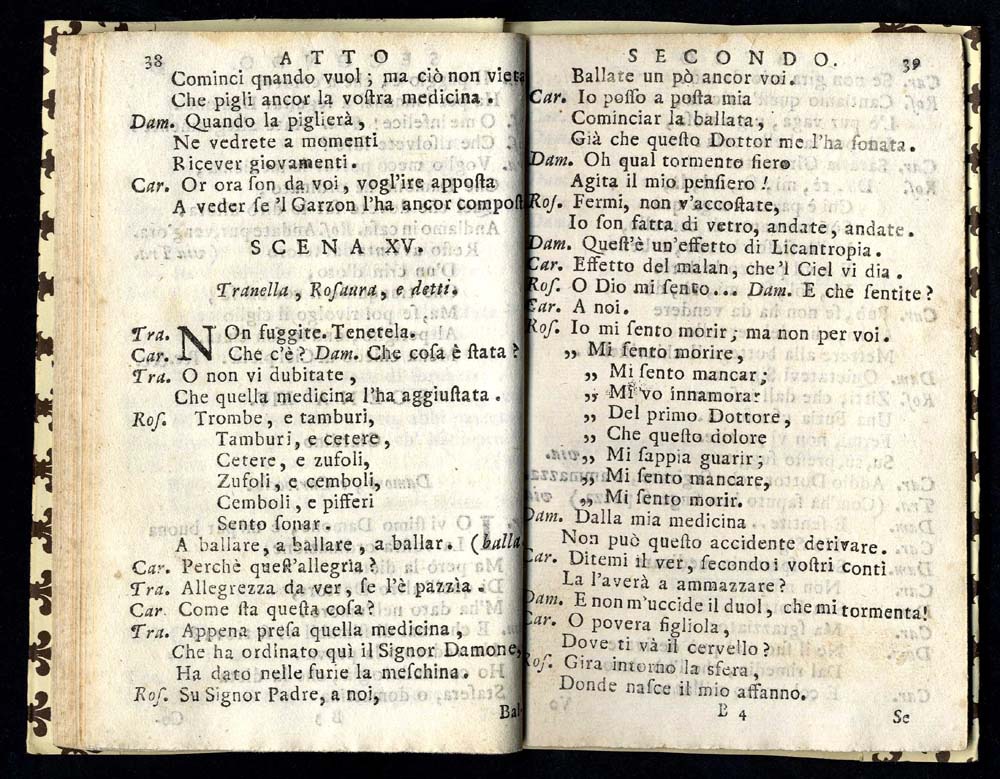 38 ATTO
Cominci qnando vuol ; ma ciò non vieta
Che pigli ancor la voſtra medicina .
Dam. Quando la piglierà ,
Ne vedrete a momenti
Ricever giovamenti .
Car. Or ora ſon da voi , vogl'ire appoſta
A veder ſe 'l Garzon l'ha ancor compoſt
SCENA XV.
Tranella , Roſaura , e detti .
Tra. NOn fuggite . Tenetela .
Car. Che c'è ? Dam. Che coſa è ſtata ?
Tra. O non vi dubitate ,
Che quella medicina l'ha aggiuſtata .
Roſ. Trombe , e tamburi,
Tamburi, e cetere ,
Cetere , e zufoli,
Zufoli , e cemboli,
Cemboli , e pifferi
Sento ſonar .
A ballare , a ballare , a ballar . ( balla
Car. Perchè queſt'allegrìa ?
Tra. Allegrezza da ver , ſe l'è pazzìa .
Car. Come ſta queſta coſa ?
Tra. Appena preſa quella medicina ,
Che ha ordinato quì il Signor Damone,
Ha dato nelle furie la meſchina .
Roſ. Su Signor Padre, a noi ,
Bal-
SECONDO. 39
Ballate un pò ancor voi .
Car. Io poſſo a poſta mia
Cominciar la ballata ,
Già che queſto Dottor me l'ha ſonata .
Dam. Oh qual tormento fiero
Agita il mio penſiero !
Roſ. Fermi, non v'accoſtate ,
Io ſon fatta di vetro, andate , andate .
Dam. Queſt'è un'effetto di Licantropia .
Car. Effetto del malan , che 'l Ciel vi dia .
Roſ. O Dio mi ſento ... Dam. E che ſentite ?
Car. A noi .
Roſ. Io mi ſento morir ; ma non per voi .
,, Mi ſento morire ,
,, Mi ſento mancar ;
,, Mi vo innamorar
,, Del primo Dottore ,
,, Che queſto dolore
,, Mi ſappia guarir ;
,, Mi ſento mancare ,
,, Mi ſento morir .
Dam. Dalla mia medicina
Non può queſto accidente derivare .
Car. Ditemi il ver , ſecondo i voſtri conti
La l'averà a ammazzare ?
Dam. E non m'uccide il duol , che mi tormenta!
Car. O povera figliola ,
Dove ti và il cervello ?
Roſ. Gira intorno la sfera ,
Donde naſce il mio affanno.
B 4 Se